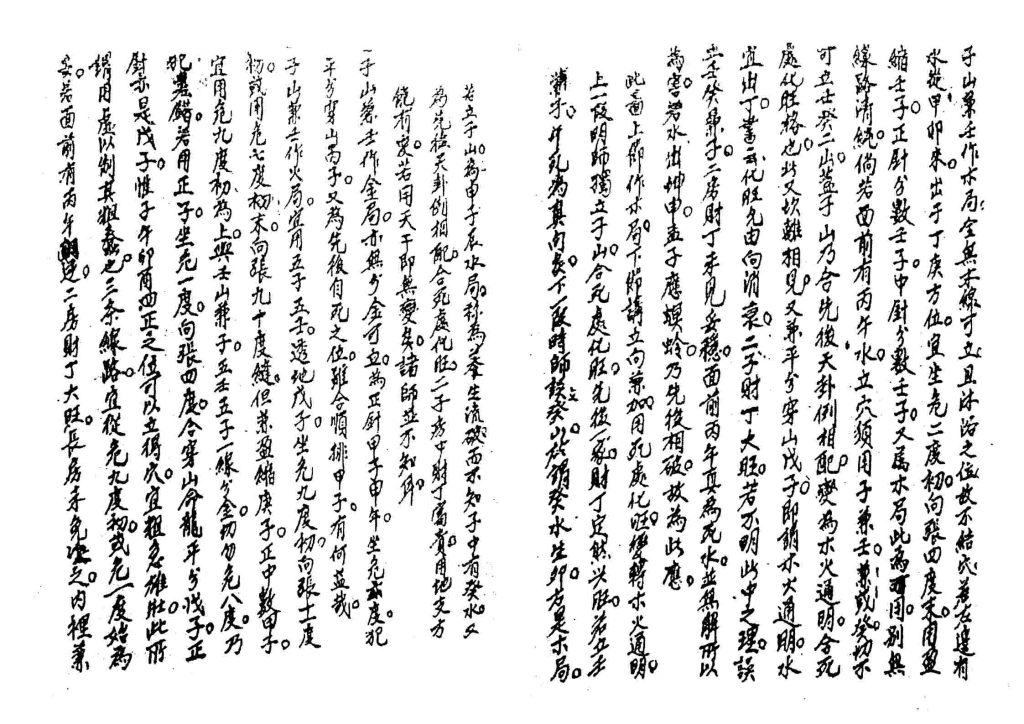 子山兼壬作木局全無木線可立且沐浴之位故不結穴若左邊有
水從甲卯來出于丁庚方位宜坐危二度初向張四度末用盈
縮壬子正針分數壬子中針分數壬子又屬木局此為可用別無
線路清純倘若面前有丙午水立穴須用子兼壬兼或癸切不
可立壬癸二山蓋子山乃合先後天卦例相配變為木火通明合死
處化旺格也此又坎離相見又兼平分穿山戊子即謂水火通明水
宜出丁業云化旺先由向消衰二子財丁大旺若不明此中之理誤
立壬癸兼子二房財丁未見安穩面前丙午真為死水並無解所以
為害若水出坤申孟子應螟蛉乃先後相破故為此應
此面上節作木局下節講立向兼加用死處化旺變轉木火通明
上一段明師獨立子山合死處化旺先後一家財丁定然興旺若立壬
兼子午死為真向長下一段時師誤立癸山坎謂癸水生卯方是木局
若立子山為申子辰水局移為養生流破而不知子中有癸水又
為先後天卦例相配合死處化旺二子房中財丁富貴用地支方
純有变若用天干即無變矣諸師並不知耳
子山兼壬作金局亦無分金可立為正針甲子申年坐危度犯
平分穿山丙子又為先後自死之位雖合順排甲子有何益哉
子山兼壬作火局宜用五子壬子透地戊子坐危九度初向張十二度
初或用危七度初末向張九十度縫但兼盈縮庚子正中数甲子
宜用危九度初為上與壬山兼子五壬五子一線分金切勿危八度乃
犯差錯若用正子坐危一度向張四度合穿山分龍平分戊子正
針亦是戊子惟子午卯酉四正之位可以立得穴宜粗急雄壯此所
謂用虛以制其粗蠢也三条線路宜從危九度初或危一度始為
妥若面前有丙午朝迎二房財丁大旺長房未免之内裡兼